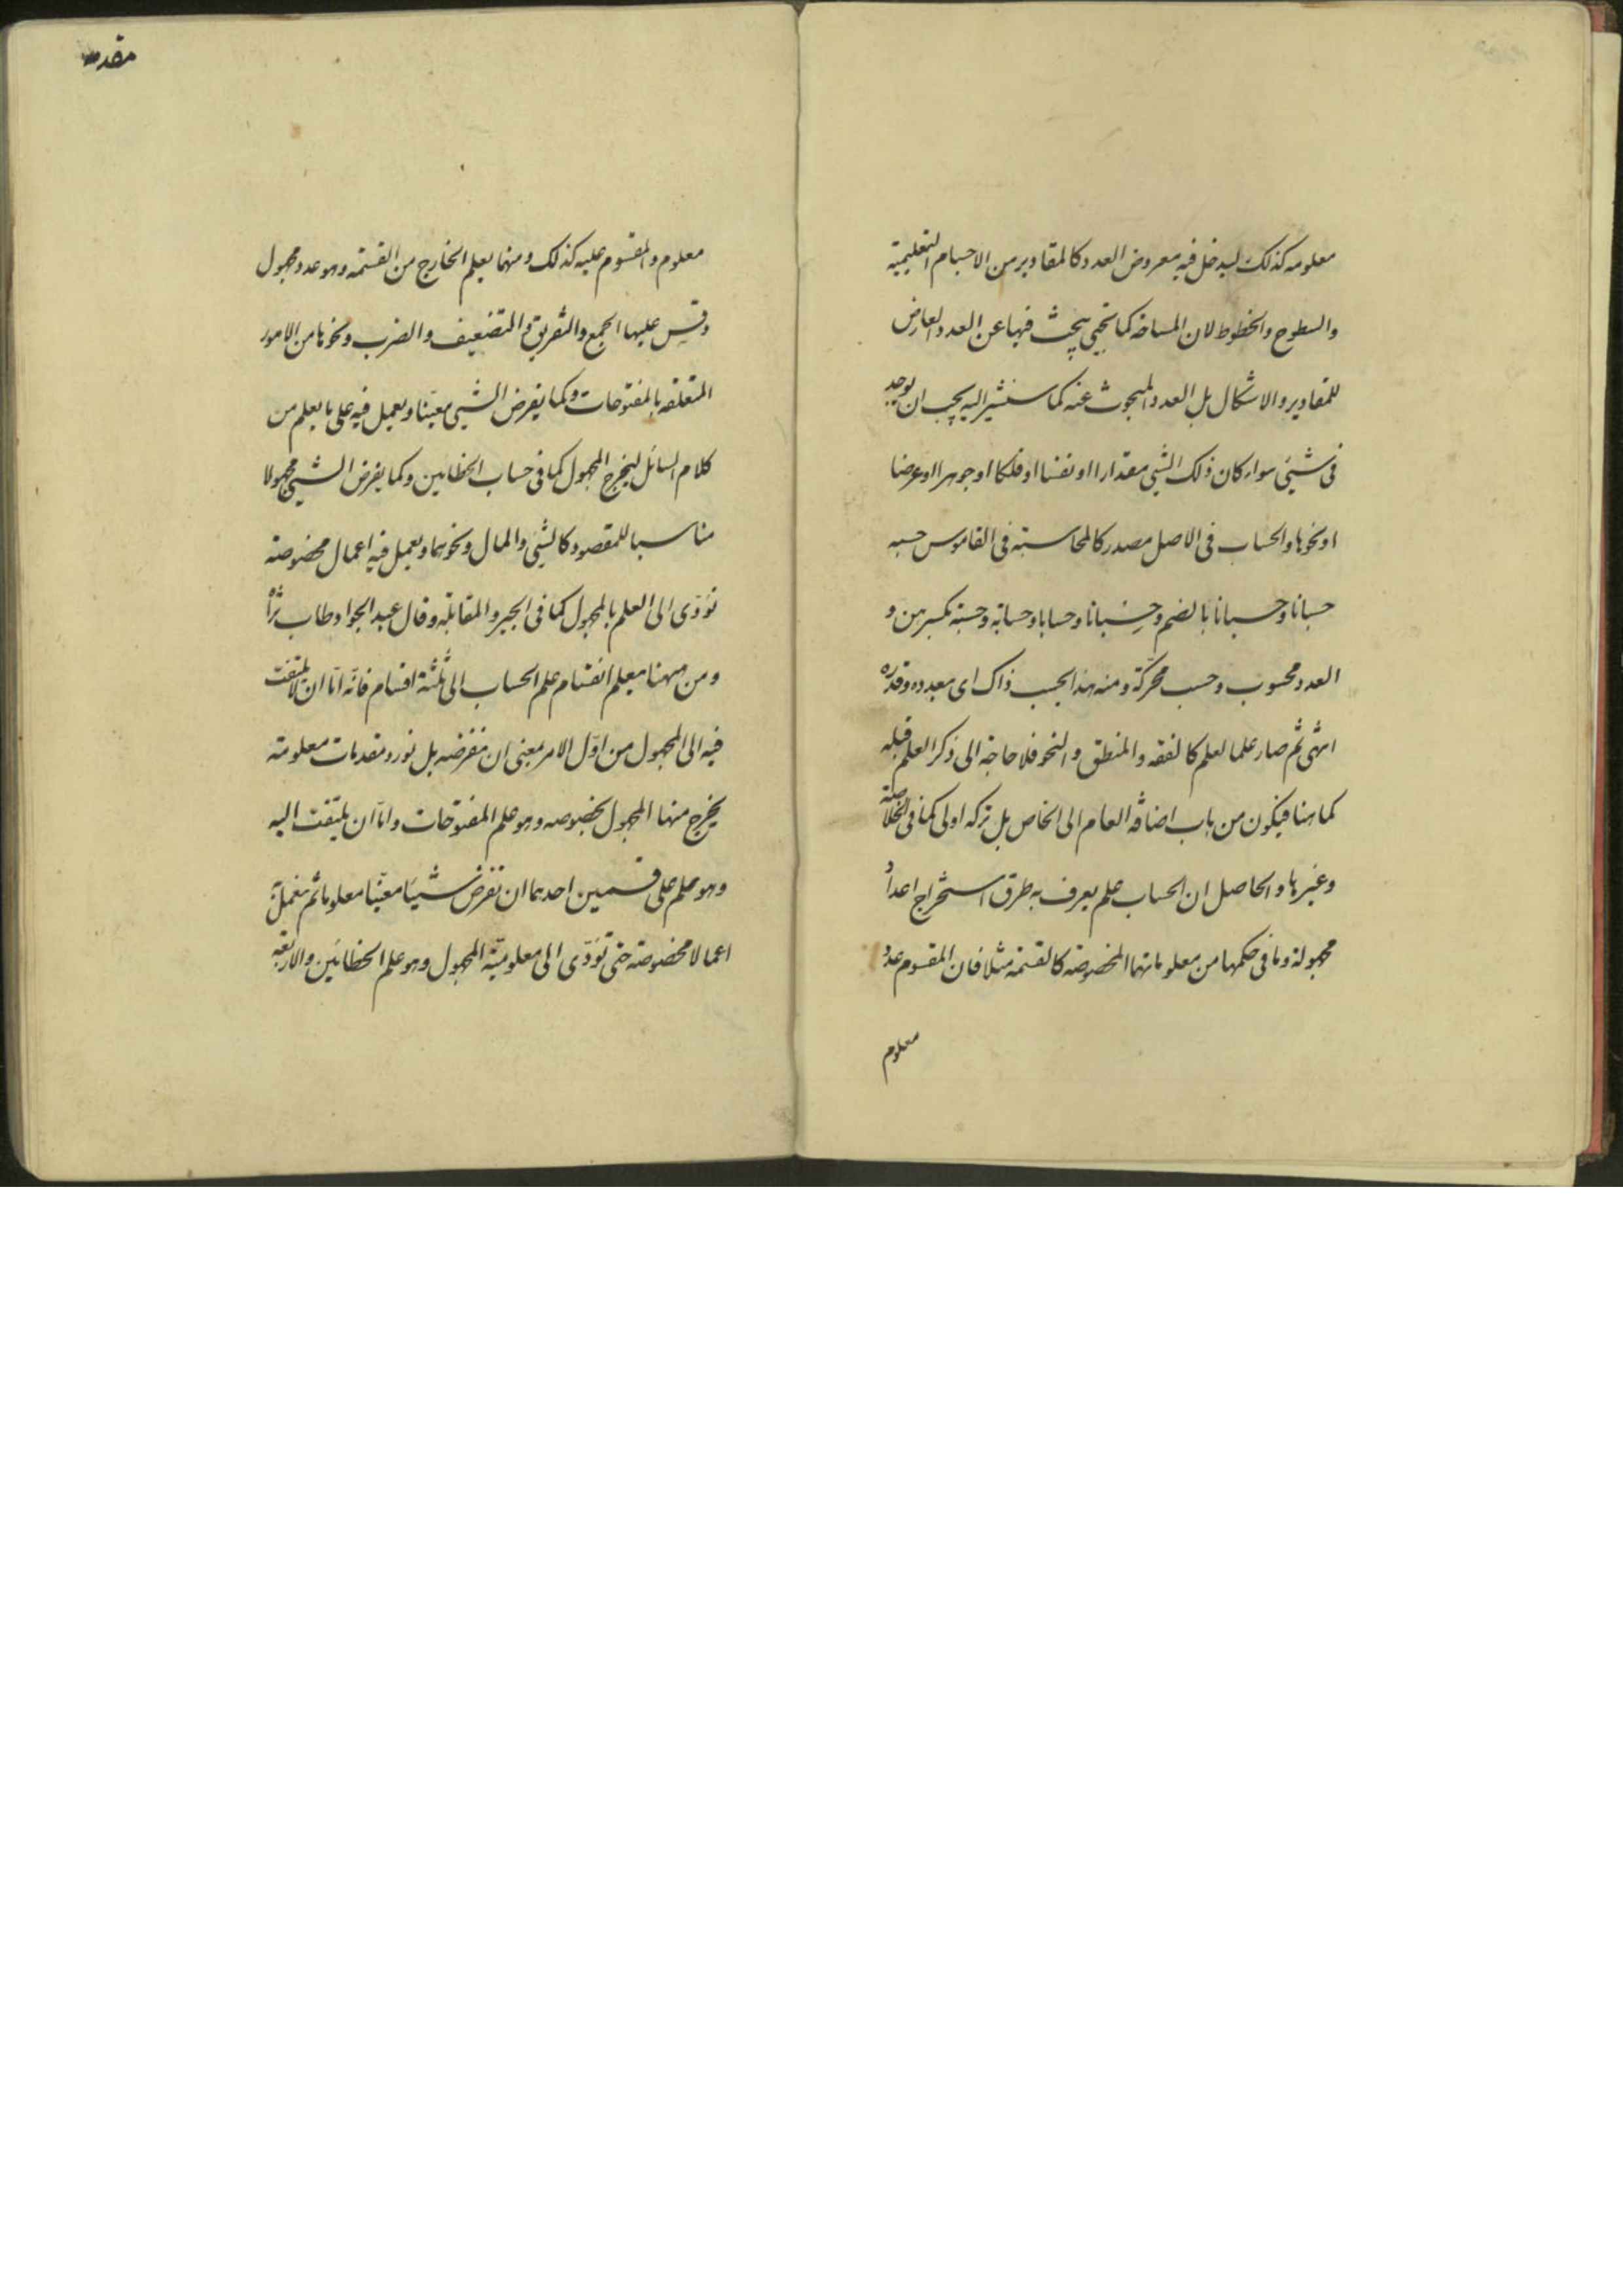 معلومه كذلك ليدخل فيه معروض العدد كالمقادير من الاجسام التعليمية
والسطوح والخطوط لان المساحة كما تجئ يبحث فيها عن العدد العارض
للمقادير والاشكال بل العدد المبحوث عنه كما سنشير اليه يجب ان يوجد
فى شيئ سواء كان ذلك الشيئ مقدارا او نفسا او فلكا او جوهرا او عرضا
او نحوها والحساب فى الاصل مصدر كالمحاسبة فى القاموس حسبه
حسبانا وحسبانا بالضم وحِسْبانا وحسابا وحسابة وحسبة بكسرهن و
العدد محسوب وحسب محركة ومنه هذا بحسب ذاك اى بعدده وقدره
انتهى ثم صار علما لعلم كالفقه والمنطق والنحو فلا حاجة الى ذكر العلم قبله
كما هنا فيكون من باب اضافة العام الى الخاص بل تركه اولى كما فى الخلاصة
وغيرها والحاصل ان الحساب علم يعرف به طرق استخراج اعداد
مجهولة وما فى حكمها من معلوماتها المخصوصة كالقسمة مثلا فان المقسوم عدد
معلوم
معلوم والمقسوم عليه كذلك ومنهما يعلم الخارج من القسمة وهو عدد مجهول
وقِس عليها الجمع والتفريق والتضعيف والضرب ونحوها من الامور
المتعلقة بالمفتوحات وكما يفرض الشيئ معيّنا ويعمل فيه على ما يعلم من
كلام السائل ليخرج المجهول كما فى حساب الخطايين وكما يفرض الشيئ مجهولا
مناسبا للمقصود كالشيئ والمال ونحوهما ويعمل فيه اعمال مخصوصة
تؤدّى الى العلم بالمجهول كما فى الجبر والمقابلة وقال عبد الجواد طاب ثراه
ومن ههنا يعلم انقسام علم الحساب الى ثلثة اقسام فانّه امّا ان لا يلتفت
فيه الى المجهول من اوّل الامر بمعنى ان نفرضه بل نورد مقدمات معلومة
يخرج منها المجهول بخصوصه وهو علم المفتوحات وامّا ان يلتفت اليه
وهو علم على قسمين احدهما ان نفرض شيئا معيّنا معلوما ثم نعمل
اعمالا مخصوصة حتى تؤدّى الى معلوميّة المجهول وهو علم الخطائين والاربعة